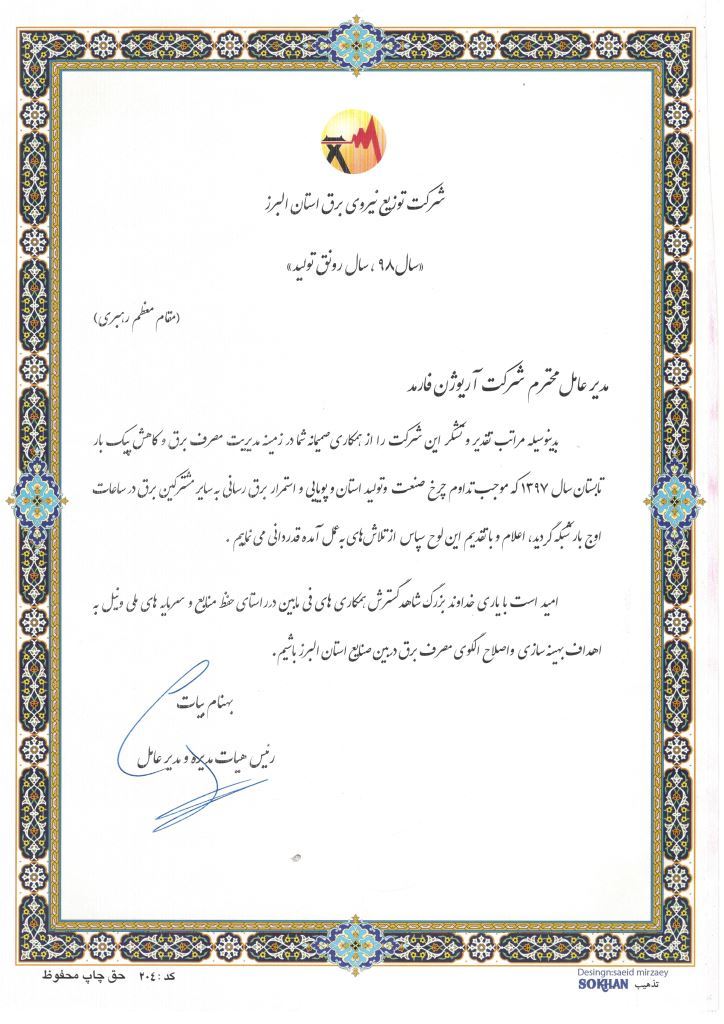 شرکت توزیع نیروی برق استان البرز
«سال ۹۸ ، سال رونق تولید»
(مقام معظم رهبری)
مدیر عامل محترم شرکت آریوژن فارمد
بدینوسیله مراتب تقدیر و تشکر این شرکت را از همکاری صمیمانه شما در زمینه مدیریت مصرف برق و کاهش پیک بار
تابستان سال ۱۳۹۷ که موجب تداوم چرخ صنعت وتولید استان و پویایی و استمرار برق رسانی به سایر مشترکین برق در ساعات
اوج بار شبکه گردید، اعلام و با تقدیم این لوح سپاس از تلاش های به عمل آمده قدردانی می نماییم .
امید است با یاری خداوند بزرگ شاهد گسترش همکاری های فی مابین درراستای حفظ منابع و سرمایه های ملی ونیل به
اهداف بهینه سازی واصلاح الگوی مصرف برق دربین صنایع استان البرز باشیم .
بهنام بیات
رئیس هیات مدیره و مدیر عامل
کد : ۲۰۴ حق چاپ محفوظ
Desingn:saeid mirzaey
تذهیب SOKHAN